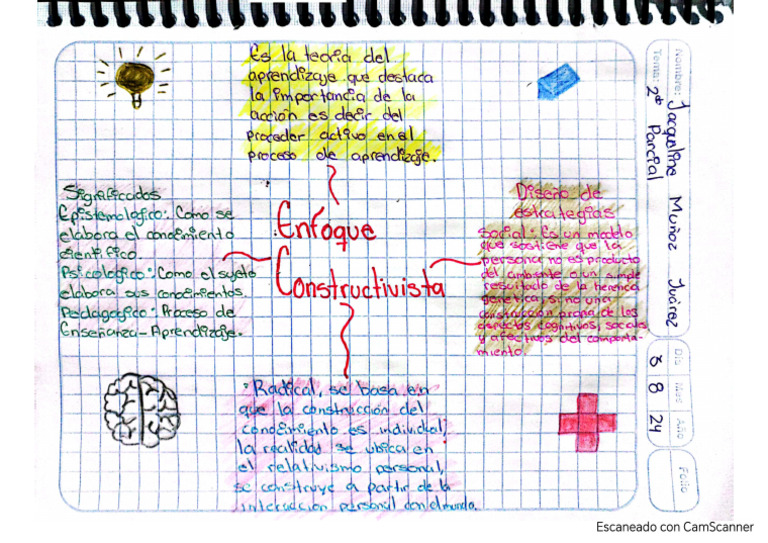 Es la teoría del
aprendizaje que destaca
la importancia de la
acción es decir del
proceder activo en el
proceso de aprendizaje.
Nombre: Jacqueline Muñoz Juárez
Tema: 2º Parcial
Día Mes Año
8 8 24
Folio
Significados
Epistemologico: Como se
elabora el conocimiento
cientifico.
Psicologico: Como el sujeto
elabora sus conocimientos.
Pedagogico: Proceso de
Enseñanza-Aprendizaje.
Enfoque
Constructivista
Diseño de
estrategias
Social: Es un modelo
que sostiene que la
persona no es producto
del ambiente o un simple
resultado de la herencia
genetica, si no una
construcción propia de los
aspectos cognitivos, sociales
y afectivos del comporta-
miento.
Radical, se basa en
que la construcción del
conocimiento es individual,
la realidad se ubica en
el relativismo personal,
se construye a partir de la
interacción personal con el mundo.
Escaneado con CamScanner